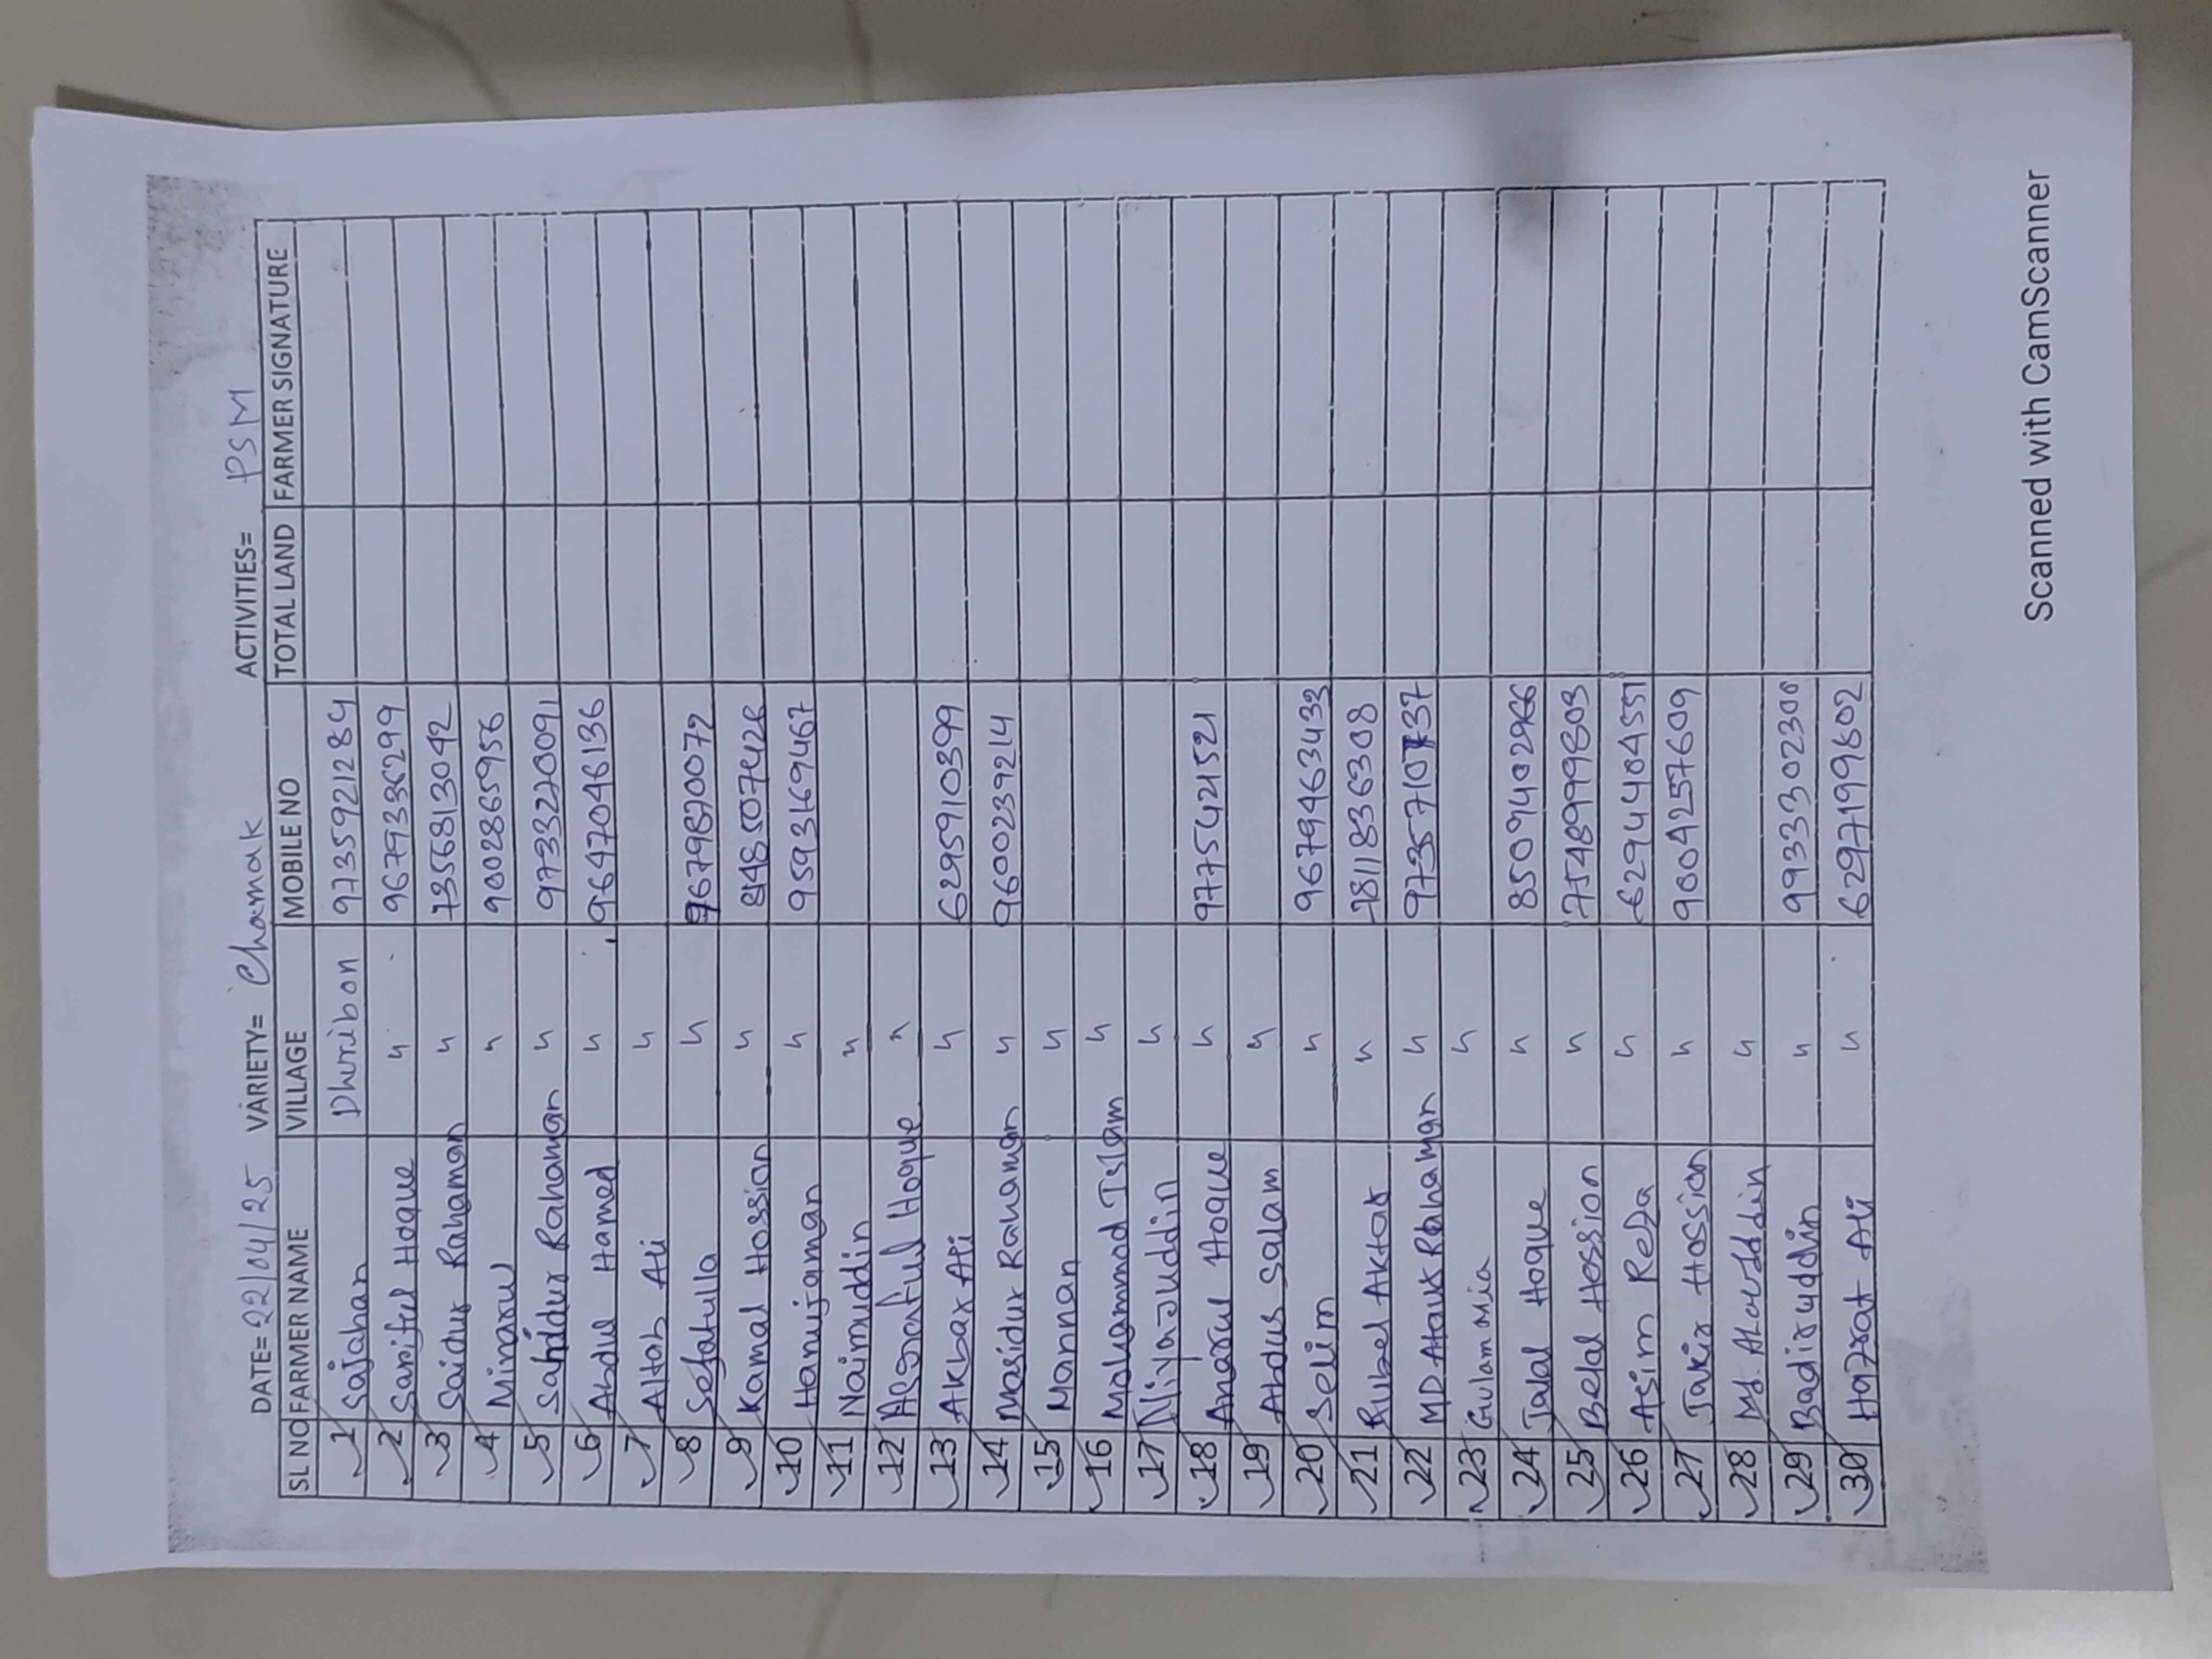 DATE= 22/04/25 VARIETY= Chamak ACTIVITIES= PSM
SL NO FARMER NAME VILLAGE MOBILE NO TOTAL LAND FARMER SIGNATURE
1 Sajahan Dhuribon 9735921284
2 Sariful Hoque " 9679336299
3 Saidur Rahaman " 7356813042
4 Minarul " 9002865956
5 Sahidur Rahaman " 9733220091
6 Abdul Hamed " 9647046136
7 Altab Ali "
8 Sefatulla " 9679870072
9 Kamal Hossion " 8485074426
10 Hanujaman " 9593169467
11 Naimuddin "
12 Hoque "
13 Akbar Ali " 6295910399
14 Masidur Rahaman " 9600239214
15 Mannan "
16 Mohammad Islam "
17 Niyajuddin "
18 Anarul Hoque " 9775421521
19 Abdus Salam "
20 Selim " 9679463433
21 Rubel Aktar " 7811836308
22 MD Ataur Rahaman " 9735710737
23 Gulam Mia "
24 Jalal Hoque " 8509402966
25 Belal Hossion " 7548999803
26 Asim Reja " 6294404551
27 Jakir Hossion " 9004257609
28 Md. "
29 Badiruddin " 9933302300
30 Hazrat Ali " 6297199802
Scanned with CamScanner